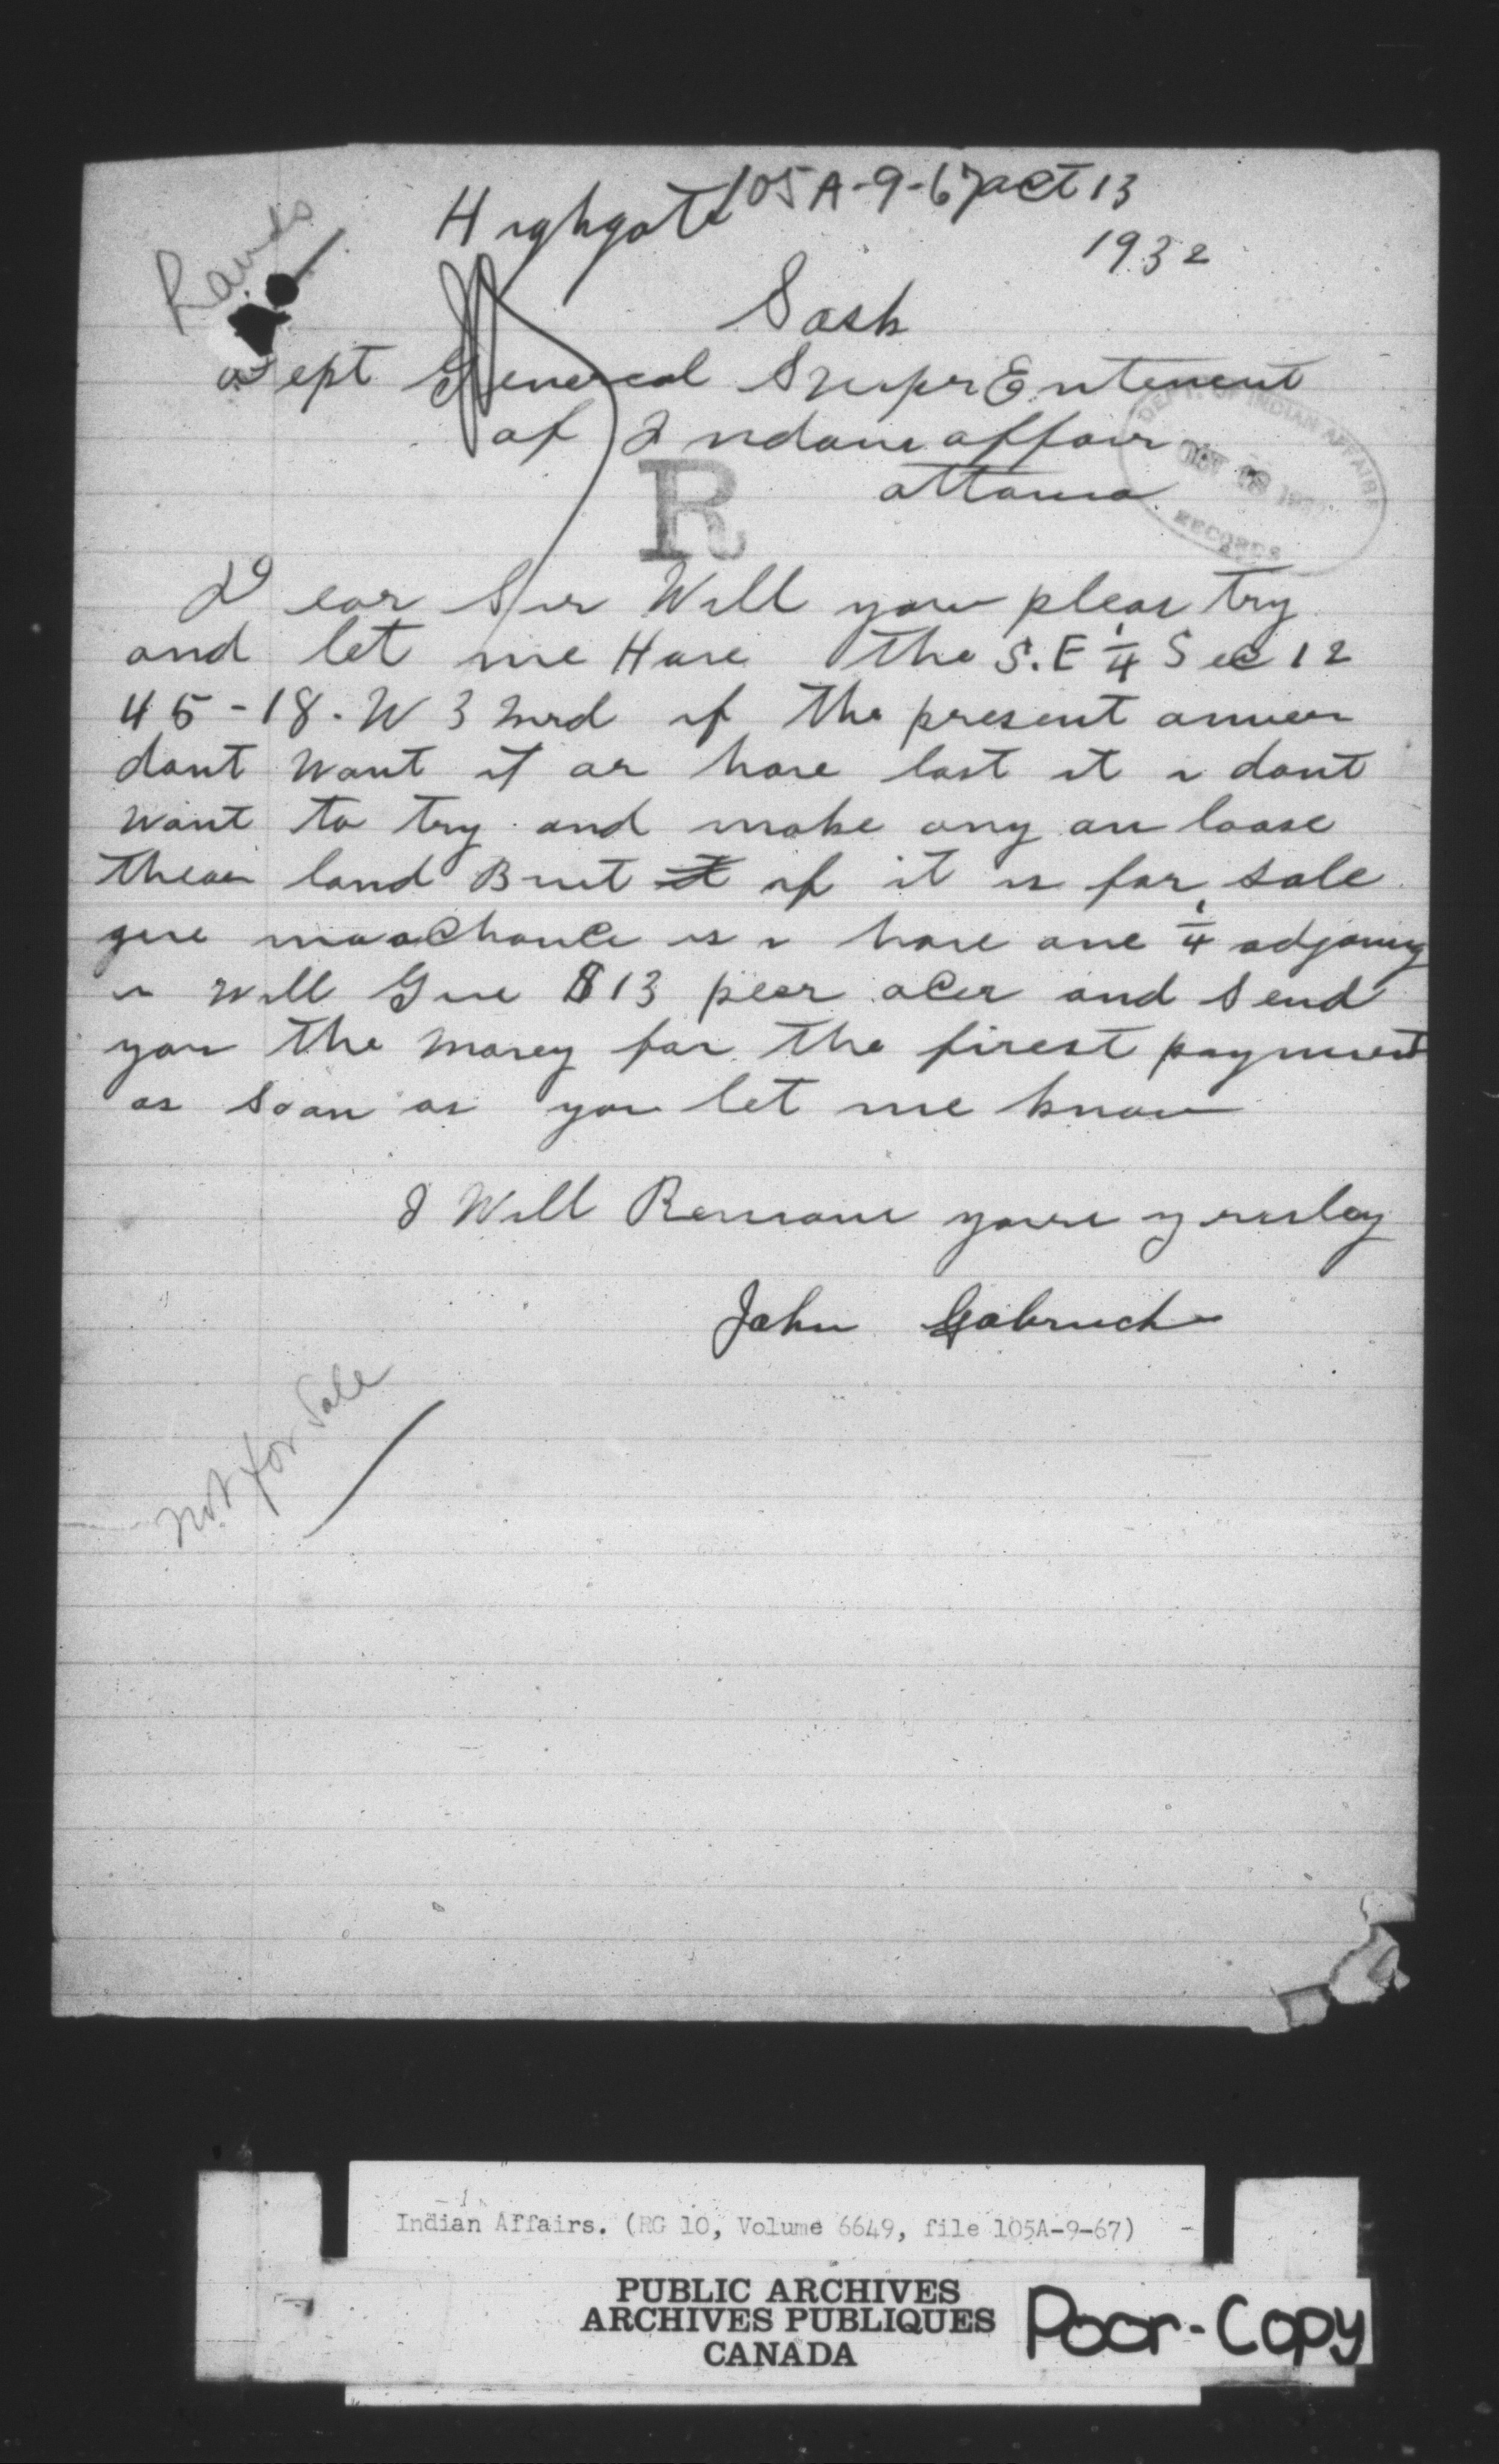 Highgate 105A-9-67 oct 13
1932
Lands
Sask
Dept General SuuprEntenent
of Indane affair
R
ottawa
DEPT. OF INDIAN AFFAIRS
RECORDS
Dear Sir Will you pleas try
and let me Have the S.E 1/4 Sec 12
45-18. W 3 mrd if the present owner
dont want it or have lost it i dont
want to try and make ony on loose
thear land But it if it is for sale
give me a Chance is i have one 1/4 adjoing
i will Give $13 pear acer and Send
you the money for the firest payment
as soon as you let me know
I Will Remane youre
John Gabruch
not for Sale
Indian Affairs. (RG 10, Volume 6649, file 105A-9-67)
PUBLIC ARCHIVES
ARCHIVES PUBLIQUES
CANADA
Poor-Copy